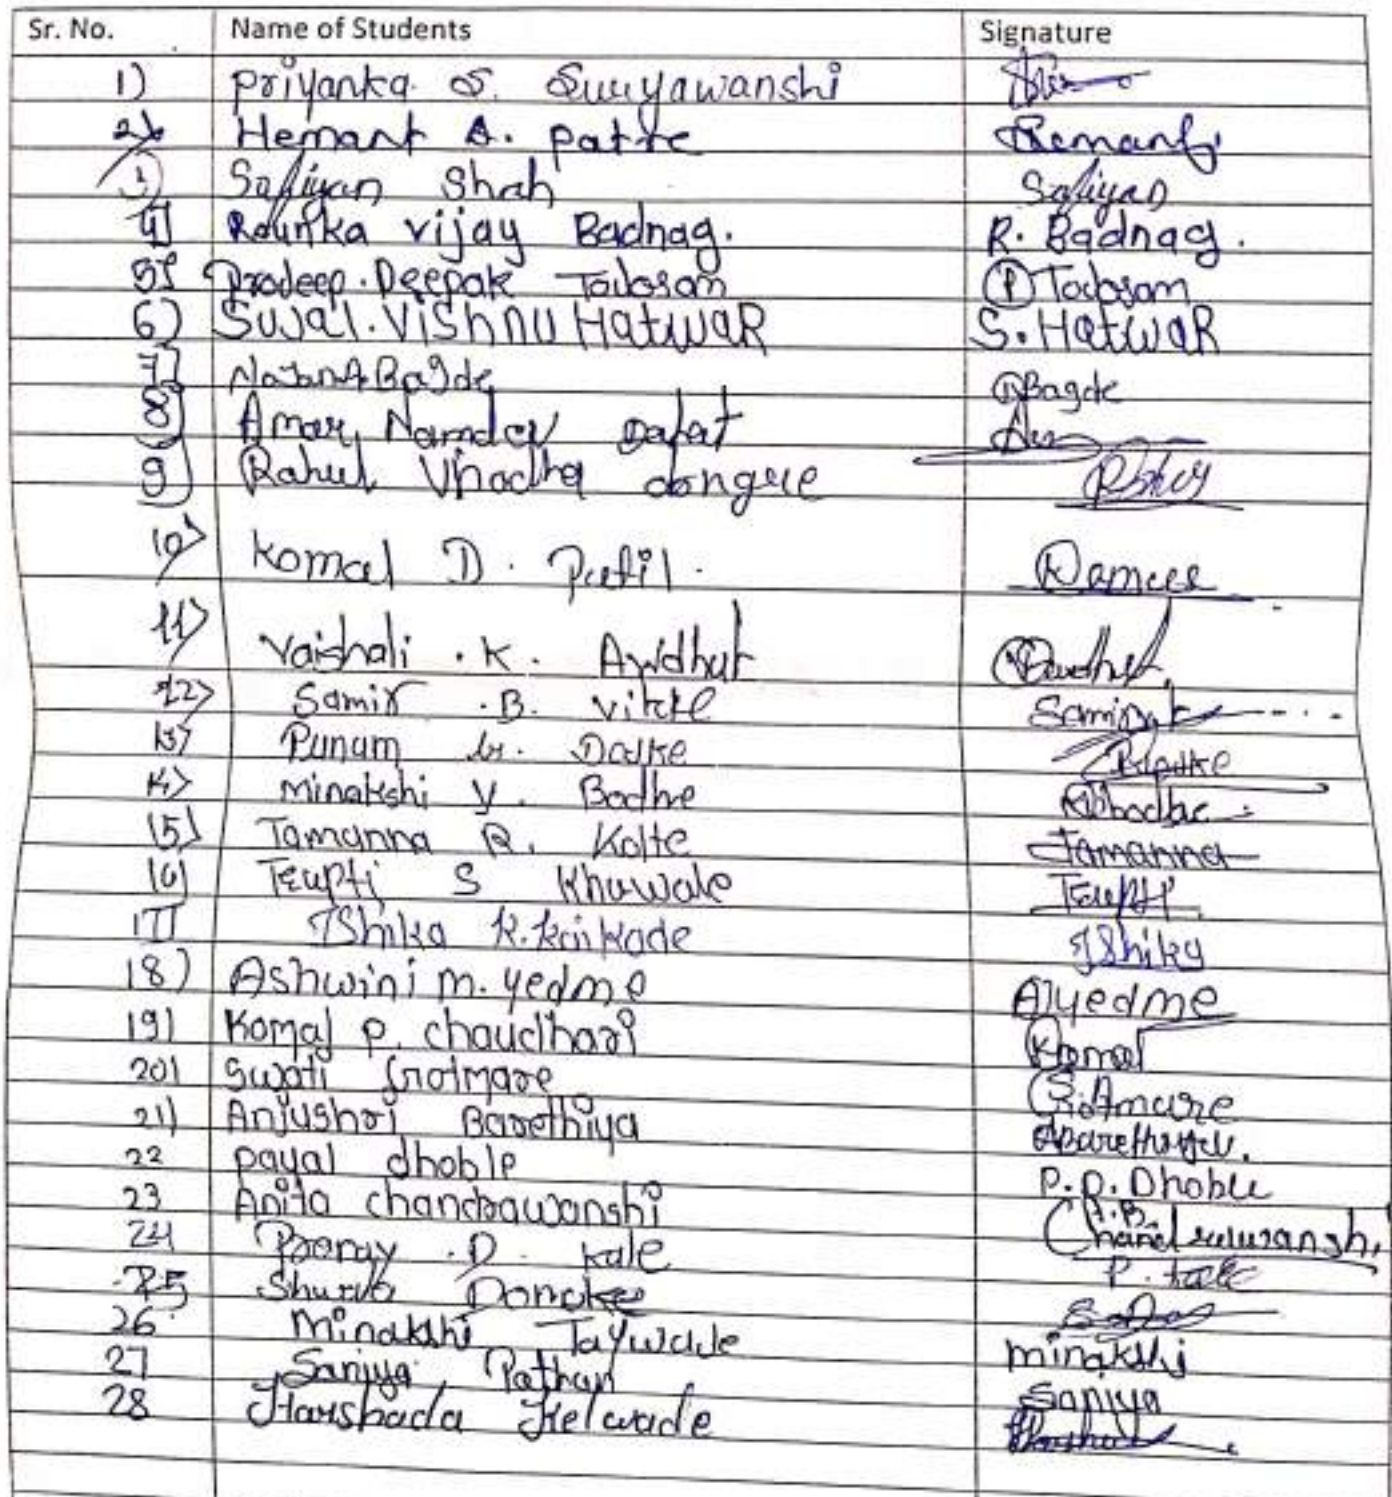 Sr. No. Name of Students Signature
1) Priyanka S. Suryawanshi
2) Hemant A. Patre Hemant
3) Safiyan Shah Safiyan
4] Raunka Vijay Badnag. R. Badnag.
5] Pradeep. Deepak Todosam P Todosam
6) Sujal. VISHNU HatwaR S. HatwaR
7] Bagde Bagde
8) Amar Namdev
9) Rahul dongre
10) Komal D. Patil.
11) Vaishali . K. Avdhut
12) Samir . B.
13) Punam
14) Minakshi Y. Bodhe
15) Tamanna R. Kolte Tamanna
16) Trupti S Khawale Trupti
17] IShika K. Kaikade IShika
18) Ashwini m. yedme A)yedme
19) Komal P. chaudhari Komal
20) Swati Gotmare
21) Anjushri Barethiya ABarethiya.
22 Payal dhoble P. D. Dhoble
23 Anita chandrawanshi A.B. Chandrawanshi
24 D. Kale P. Kale
25
26 Minakshi Taywade minakshi
27 Saniya Pathan Saniya
28 Harshada Kelwade